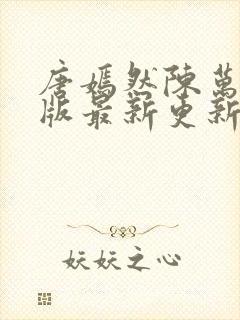 唐嫣然陳萬
版最新更新
妖妖之心